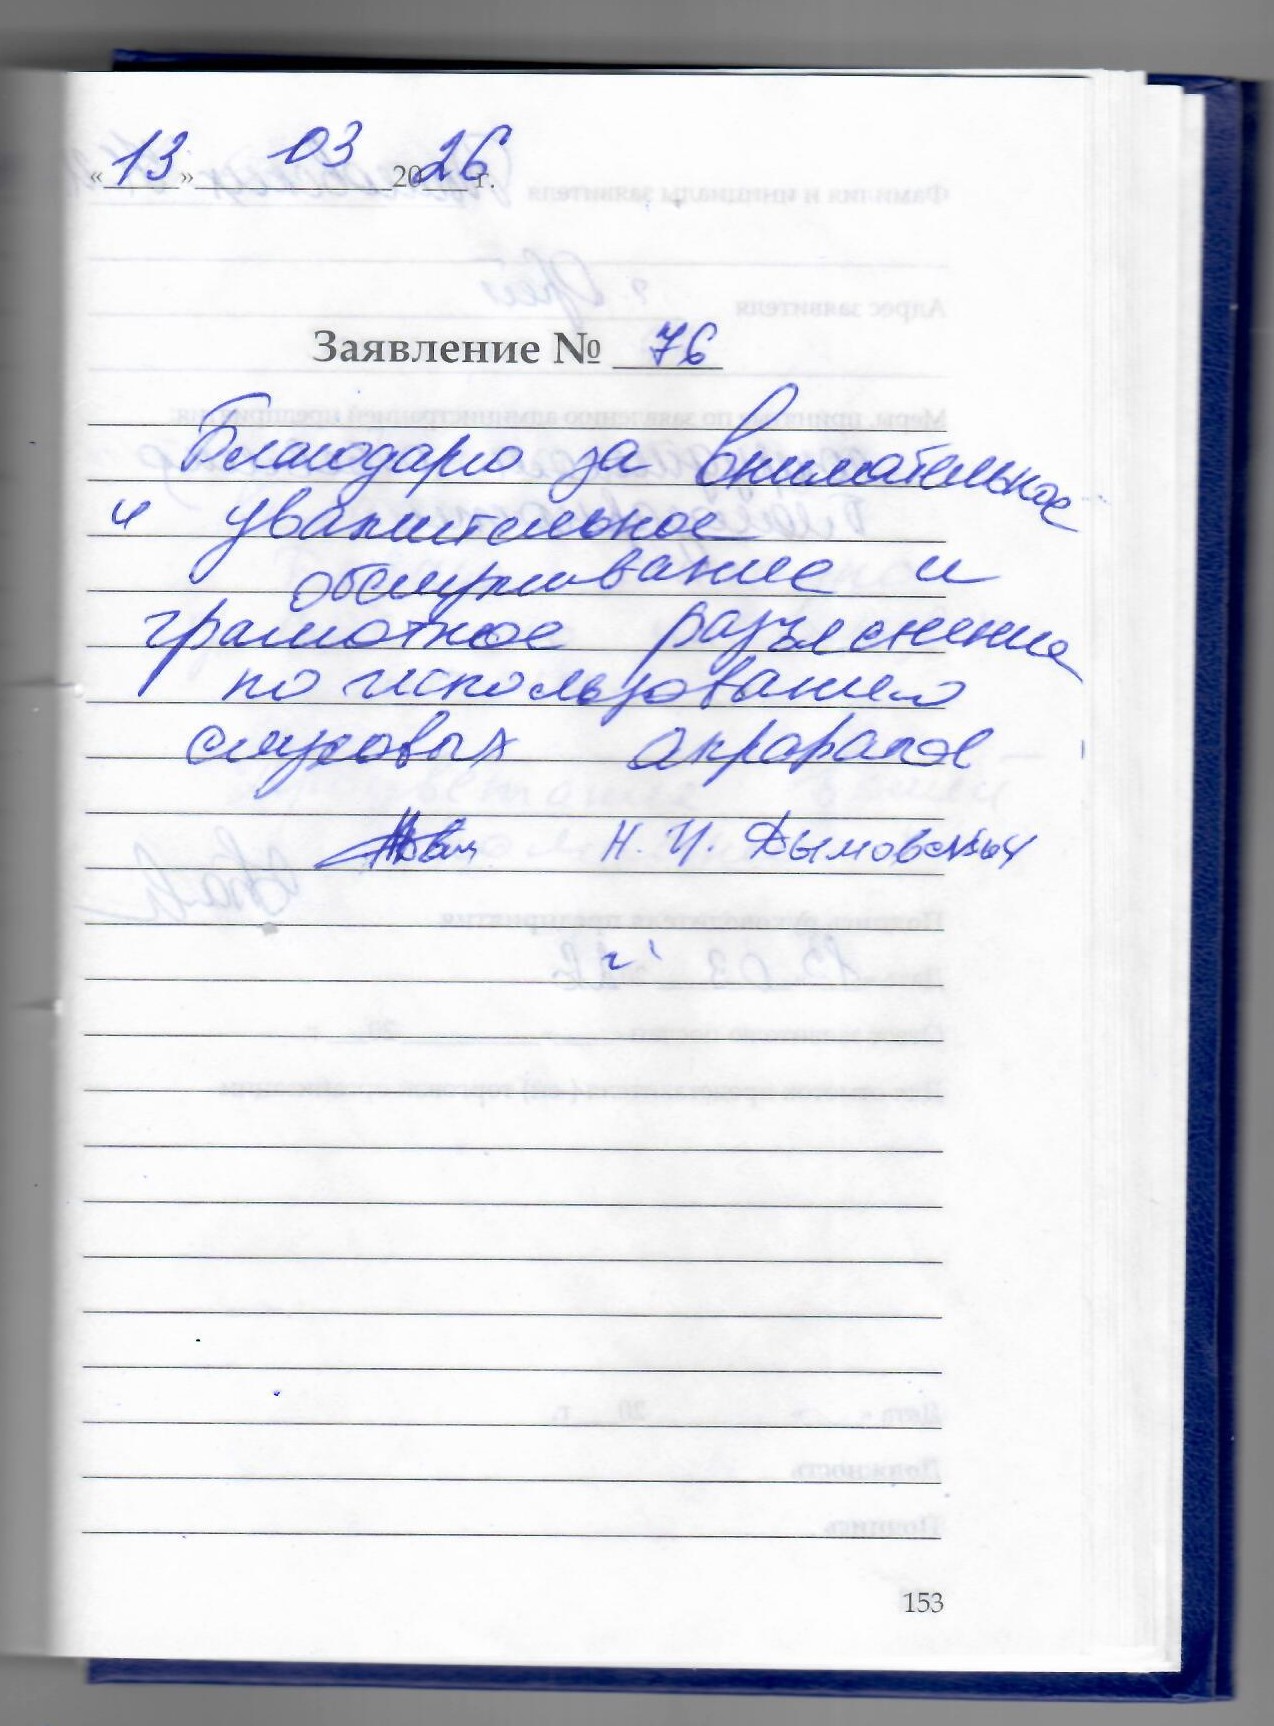 «13» 03 2026 г.
Заявление № 76
Благодарю за внимательное
и уважительное
обслуживание и
грамотное разъяснение
по использованию
слуховых
Н. И. Дымовских
153